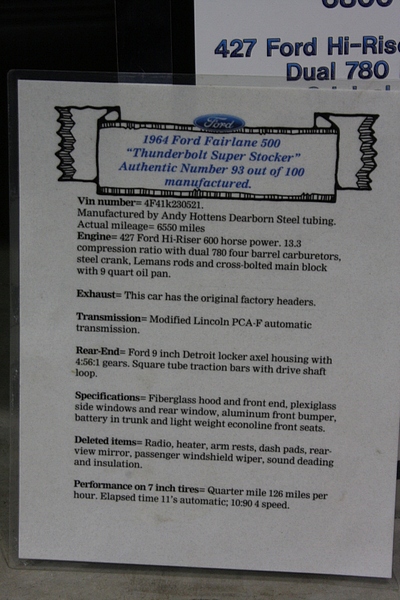 6800
427 Ford Hi-Rise
Dual 780
Ford
1964 Ford Fairlane 500
“Thunderbolt Super Stocker”
Authentic Number 93 out of 100
manufactured.
Vin number= 4F41k230521.
Manufactured by Andy Hottens Dearborn Steel tubing.
Actual mileage= 6550 miles
Engine= 427 Ford Hi-Riser 600 horse power. 13.3
compression ratio with dual 780 four barrel carburetors,
steel crank, Lemans rods and cross-bolted main block
with 9 quart oil pan.
Exhaust= This car has the original factory headers.
Transmission= Modified Lincoln PCA-F automatic
transmission.
Rear-End= Ford 9 inch Detroit locker axel housing with
4:56:1 gears. Square tube traction bars with drive shaft
loop.
Specifications= Fiberglass hood and front end, plexiglass
side windows and rear window, aluminum front bumper,
battery in trunk and light weight econoline front seats.
Deleted items= Radio, heater, arm rests, dash pads, rear-
view mirror, passenger windshield wiper, sound deading
and insulation.
Performance on 7 inch tires= Quarter mile 126 miles per
hour. Elapsed time 11’s automatic; 10:90 4 speed.